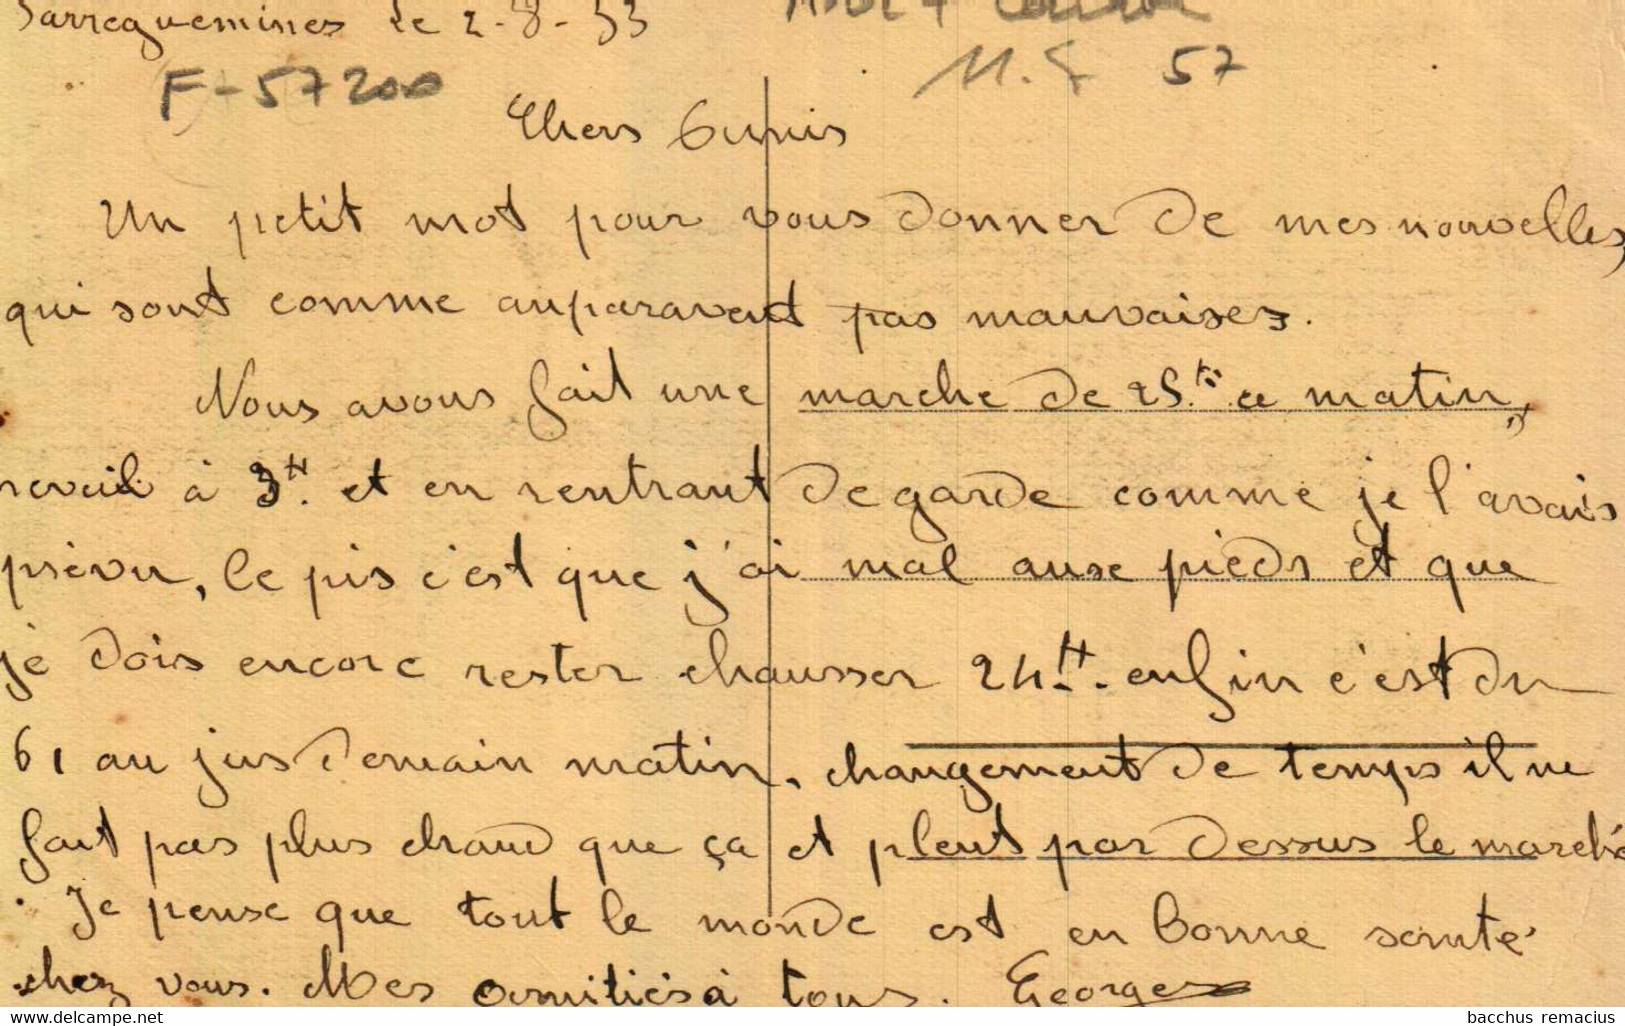 Sarreguemines le 2-8-33
F-57200
57
Chers Amis
Un petit mot pour vous donner de mes nouvelles,
qui sont comme auparavant pas mauvaises.
Nous avons fait une marche de 25 ce matin,
reveil à 3H. et en rentrant de garde comme je l'avais
prévu, le pis c'est que j'ai mal aux pieds et que
je dois encore rester chausser 24H. enfin c'est du
61 au jus demain matin, changement de temps il ne
fait pas plus chaud que ça et pleut par dessus le marché
. Je pense que tout le monde est en bonne santé
chez vous. Mes amitiés à tous. Georges
www.delcampe.net
bacchus remacius